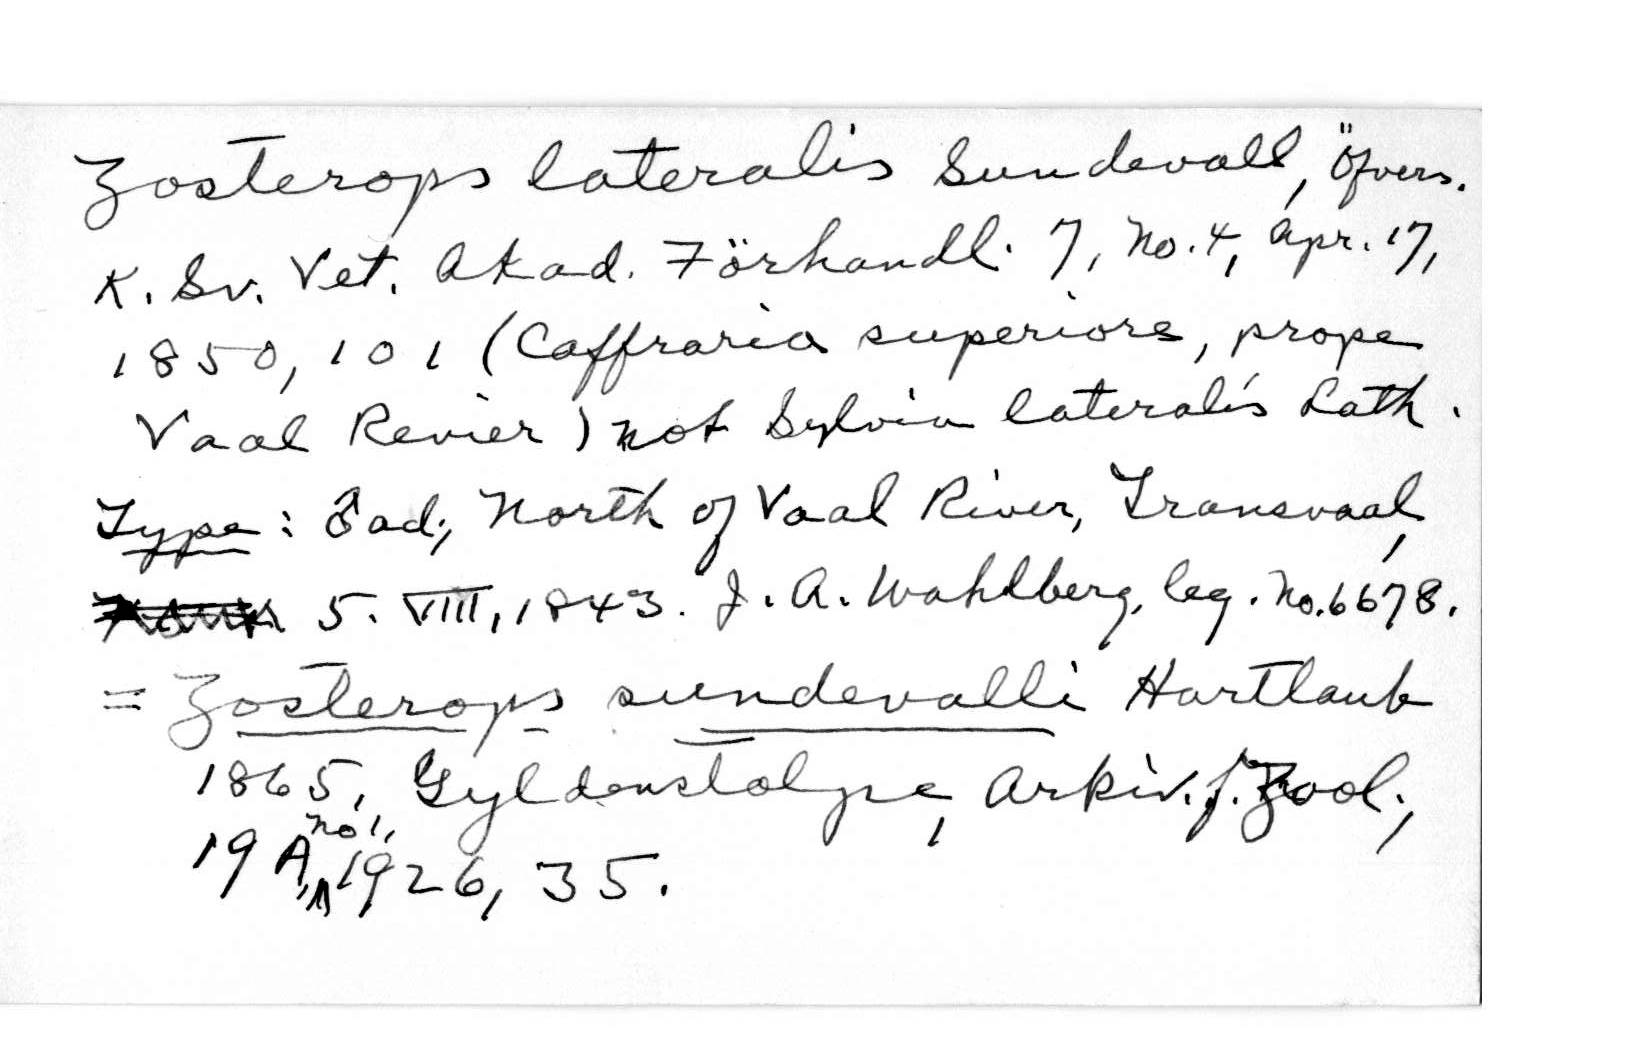 Zosterops lateralis Sundevall, Öfvers.
K. Sv. Vet. Akad. Förhandl. 7, No. 4, Apr. 17,
1850, 101 (Caffraria superiore, prope
Vaal Revier) not Sylvia lateralis Lath.
Type: ♂ ad; North of Vaal River, Transvaal,
5. VIII, 1843. J. A. Wahlberg, leg. No. 6678.
= Zosterops sundevalli Hartlaub
1865, Gyldenstolpe, Arkiv. f. Zool.,
19 A, no 1, 1926, 35.